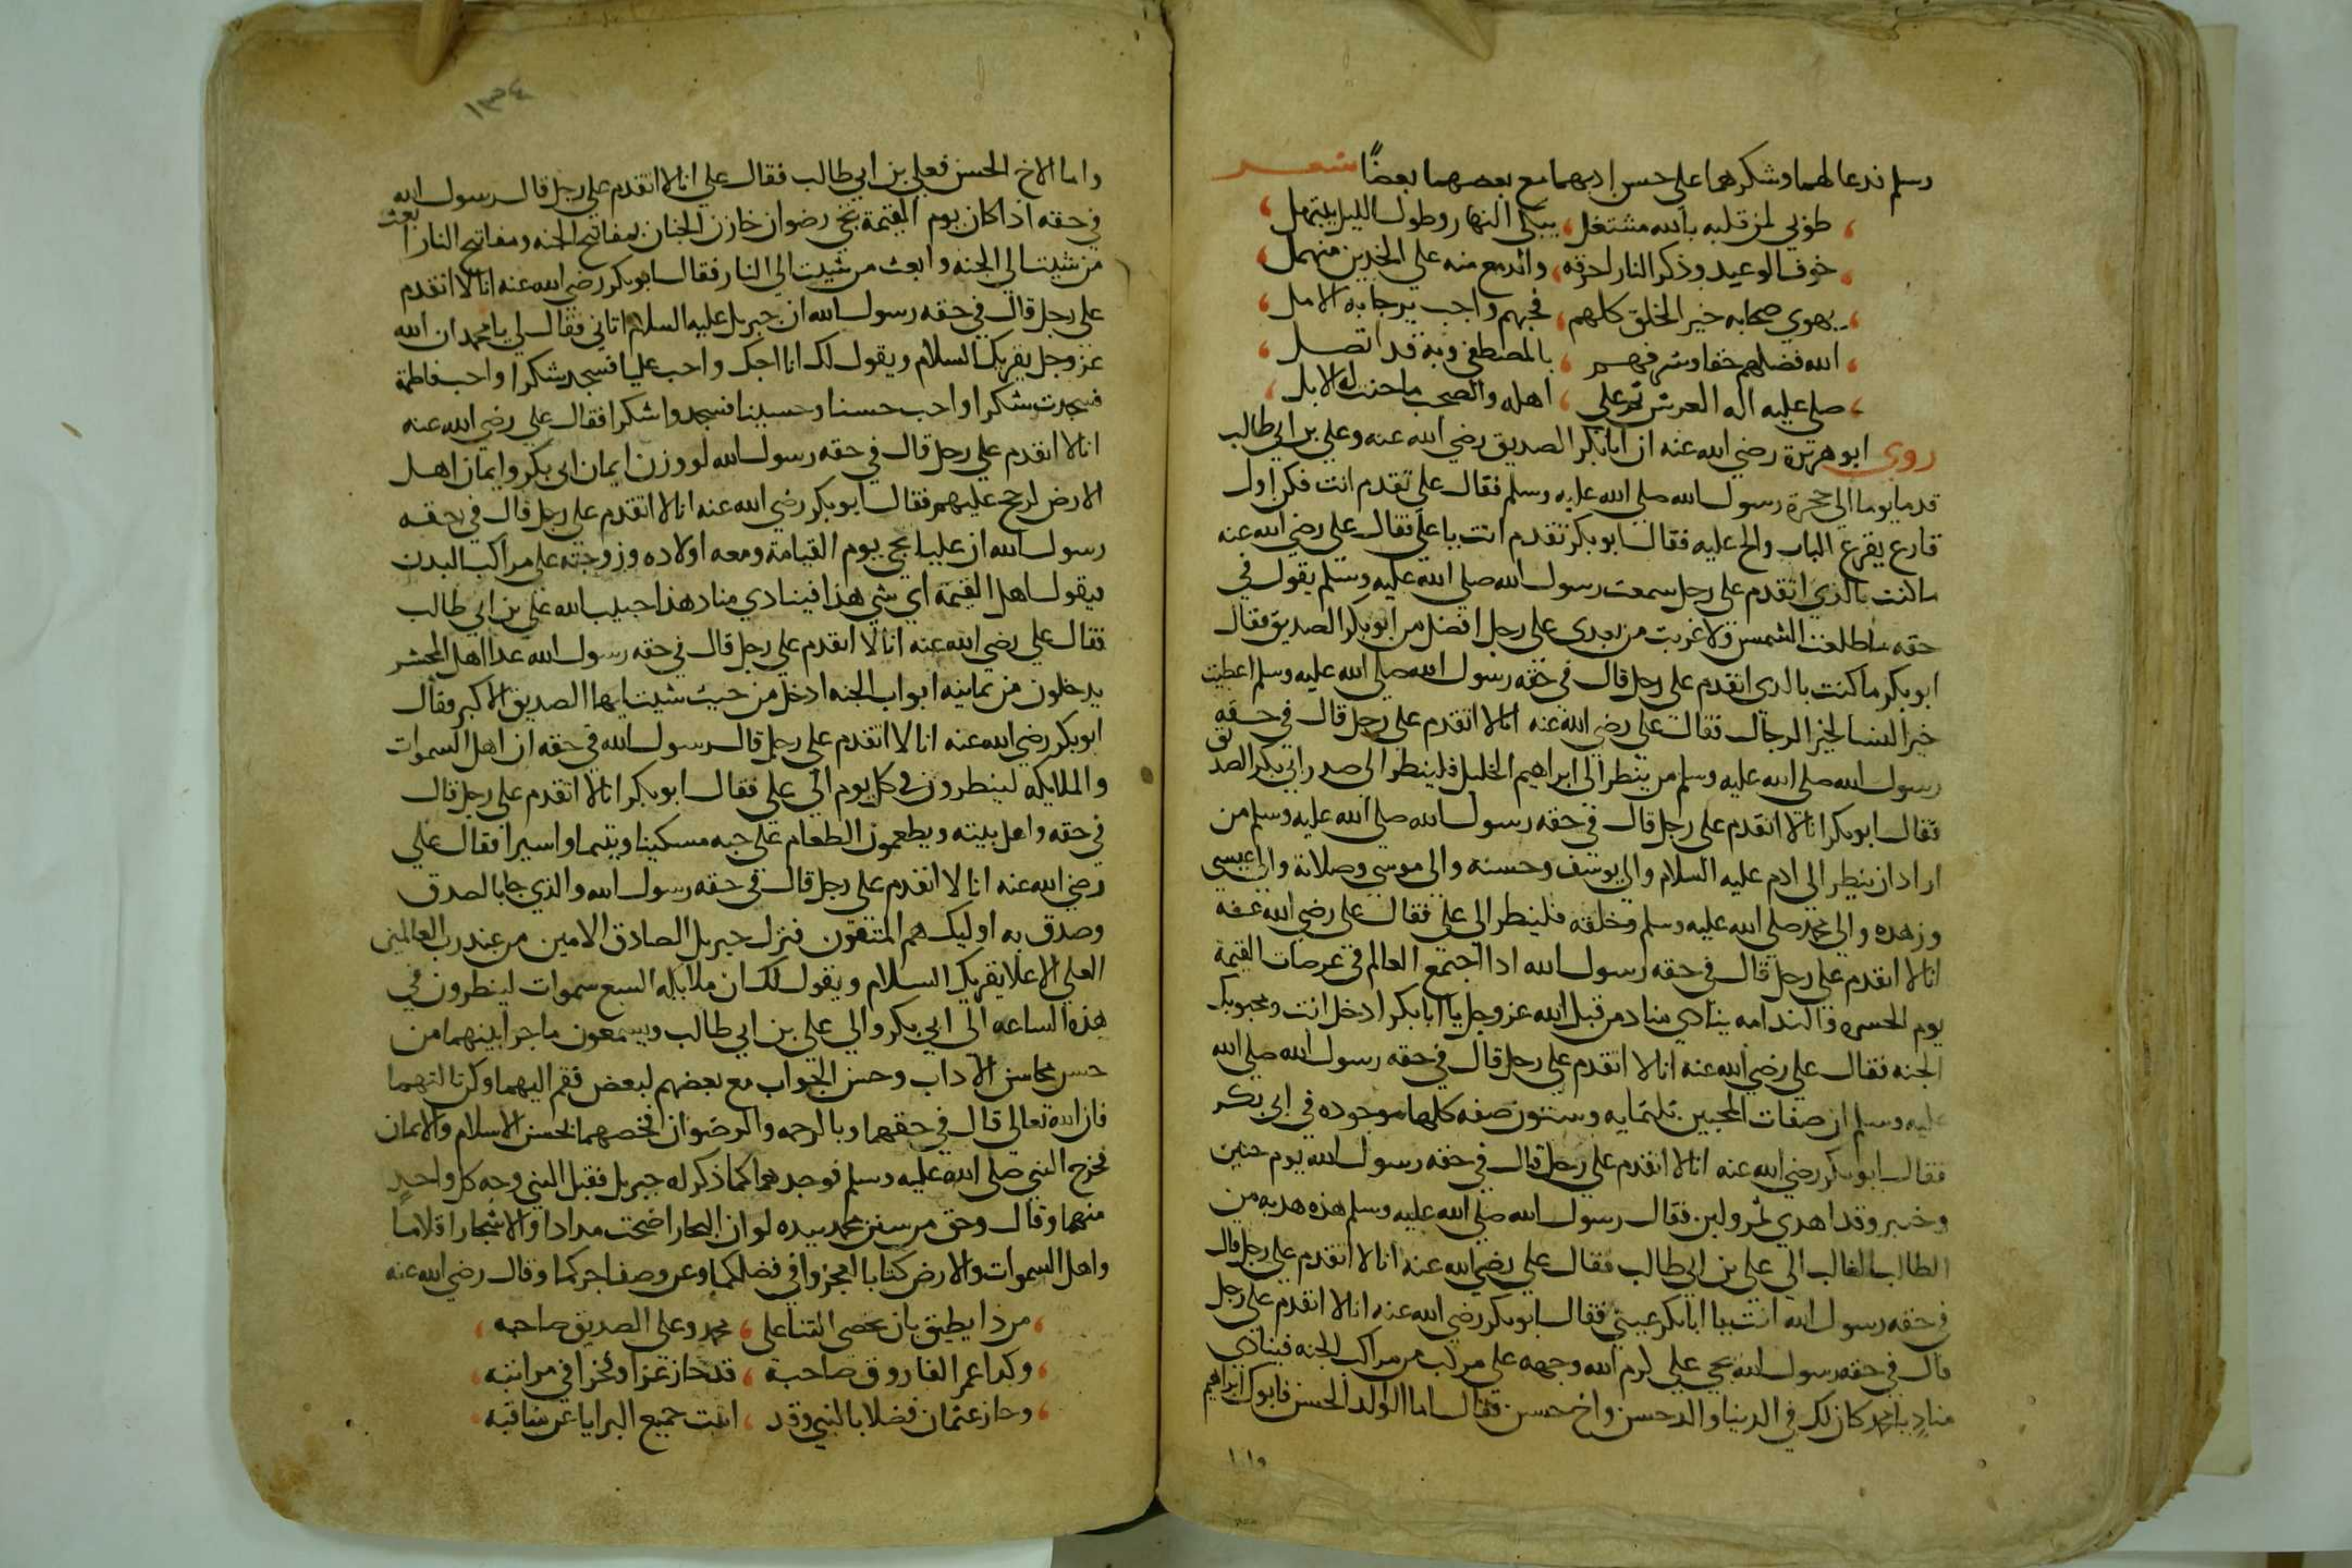 وسلم فدعا لهما وشكرهما على حسن ادبهما مع بعضهما بعضًا شعر
طوبى لمن قلبه بالله مشتغل يبكي النهار وطول الليل يبتهل
خوف الوعيد وذكر النار احرقه والدمع منه على الخدين منهمل
يهوي صحابه خير الخلق كلهم فحبهم واجب يرجا به الامل
الله فضلهم حقا وشرفهم بالمصطفى وبه قد اتصل
صلى عليه اله العرش ثم على اهله والصحب ما حنت له الابل
روى ابو هريرة رضي الله عنه ان ابابكر الصديق رضي الله عنه وعلي بن ابي طالب
قدما يوما الى حجرة رسول الله صلى الله عليه وسلم فقال علي تقدم انت فكن اول
قارع يقرع الباب والح عليه فقال ابو بكر تقدم انت يا علي فقال علي رضي الله عنه
ما كنت بالذي اتقدم على رجل سمعت رسول الله صلى الله عليه وسلم يقول في
حقه ما طلعت الشمس ولا غربت من بعدي على رجل افضل من ابو بكر الصديق فقال
ابو بكر ما كنت بالدي اتقدم على رجل قال في حقه رسول الله صلى الله عليه وسلم اعطيت
خير النسا لخير الرجال فقال علي رضي الله عنه انا لا اتقدم على رجل قال في حقه
رسول الله صلى الله عليه وسلم من ينظر الى ابراهيم الخليل فلينظر الى صدر ابي بكر الصديق
فقال ابو بكر انا لا اتقدم على رجل قال في حقه رسول الله صلى الله عليه وسلم من
اراد ان ينظر الى ادم عليه السلام والى يوسف وحسنه والى موسى وصلاته والى عيسى
وزهده والى محمد صلى الله عليه وسلم وخلقه فلينظر الى علي فقال علي رضي الله عنه
انا لا اتقدم على رجل قال في حقه رسول الله ادا اجتمع العالم في عرصات القيمة
يوم الحسره والندامه ينادي مناد من قبل الله عز وجل يا ابابكر ادخل انت ومحبوبك
الجنه فقال علي رضي الله عنه انا لا اتقدم على رجل قال في حقه رسول الله صلى الله
عليه وسلم ان صفات المحبين ثلثمايه وستون صفه كلها موجوده في ابي بكر
فقال ابو بكر رضي الله عنه انا لا اتقدم على رجل قال في حقه رسول الله يوم حنين
وخيبر وقد اهدي تمر ولبن فقال رسول الله صلى الله عليه وسلم هذه هديه من
الطالب الغالب الى علي بن ابي طالب فقال علي رضي الله عنه انا لا اتقدم على رجل قال
في حقه رسول الله انت يا ابابكر عيني فقال ابو بكر رضي الله عنه انا لا اتقدم على رجل
قال في حقه رسول الله يجي علي كرم الله وجهه على مركب من مراكب الجنه فينادي
منادٍ يا محمد كان لك في الدنيا والد حسن واخ حسن فقال اما الوالد الحسن فابوك ابراهيم
واما
١٣٤
واما الاخ الحسن فعلي بن ابي طالب فقال علي انا لا اتقدم على رجل قال رسول الله
في حقه اذا كان يوم القيمة يجي رضوان خازن الجنان بمفاتيح الجنه ومفاتيح النار ابعث
من شيت الى الجنه وابعث من شيت الى النار فقال ابو بكر رضي الله عنه انا لا اتقدم
على رجل قال في حقه رسول الله ان جبريل عليه السلام اتاني فقال لي يا محمد ان الله
عز وجل يقريك السلام ويقول لك انا احبك واحب عليا فسجد شكرا واحب فاطمة
فسجدت شكرا واحب حسنا وحسينا فسجدوا شكرا فقال علي رضي الله عنه
انا لا اتقدم على رجل قال في حقه رسول الله لو وزن ايمان ابي بكر وايمان اهل
الارض لرجح عليهم فقال ابو بكر رضي الله عنه انا لا اتقدم على رجل قال في حقه
رسول الله ان عليا يجي يوم القيامة ومعه اولاده وزوجته على مراكب البدن
فيقول اهل القيمة اي شي هذا فينادي مناد هذا حبيب الله علي بن ابي طالب
فقال علي رضي الله عنه انا لا اتقدم على رجل قال في حقه رسول الله غدا اهل المحشر
يدخلون من ثمانيه ابواب الجنه ادخل من حيث شيت ايها الصديق الاكبر فقال
ابو بكر رضي الله عنه انا لا اتقدم على رجل قال رسول الله في حقه ان اهل السموات
والملايكه لينظرون في كل يوم الى علي فقال ابو بكر انا لا اتقدم على رجل قال
في حقه واهل بيته ويطعمون الطعام على حبه مسكينا ويتيما واسيرا فقال علي
رضي الله عنه انا لا اتقدم على رجل قال في حقه رسول الله والذي جا بالصدق
وصدق به اوليك هم المتقون فنزل جبريل الصادق الامين من عند رب العالمين
العلي الاعلا يقريك السلام ويقول لك ان ملايكه السبع سموات لينظرون في
هذه الساعه الى ابي بكر والى علي بن ابي طالب ويسمعون ما جرا بينهما من
حسن محاسن الاداب وحسن الجواب مع بعضهم لبعض فقم اليهما وكن ثالثهما
فان الله تعالى قال في حقهما وبالرحمه والرضوان اخصهما بحسن الاسلام والايمان
فخرج النبي صلى الله عليه وسلم فوجدهما كما ذكر له جبريل فقبل النبي وجه كل واحدٍ
منهما وقال وحق من نفس محمد بيده لو ان البحار اضحت مدادا والاشجار اقلاما
واهل السموات والارض كتابا لعجزوا في فضلكما وعن وصف اجركما وقال رضي الله عنه
من ذا يطيق بان يحصي الثنا على محمد وعلى الصديق صاحبه
وكدا عمر الفاروق صاحبة قد حاز عزا وفخرا في مراتبه
وحاز عثمان فضلا بالنبي وقد جميع البرايا عن مناقبه